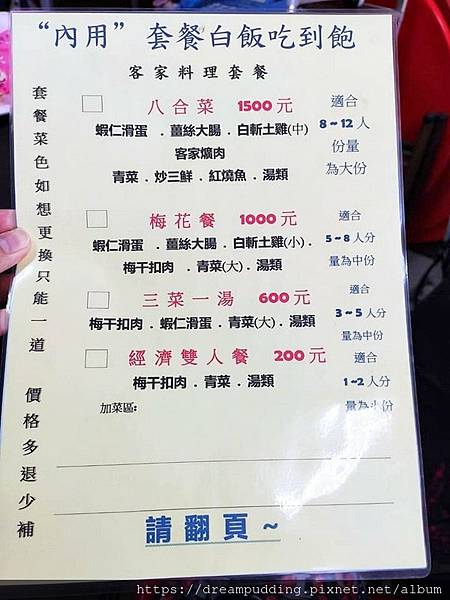 “內用” 套餐白飯吃到飽
客家料理套餐
套餐菜色如想更換只能一道 價格多退少補
八合菜 1500元
適合
8~12人
份量
為大份
蝦仁滑蛋 . 薑絲大腸 . 白斬土雞(中)
客家爌肉
青菜 . 炒三鮮 . 紅燒魚 . 湯類
梅花餐 1000元
適合
5~8人分
量為中份
蝦仁滑蛋 . 薑絲大腸 . 白斬土雞(小) .
梅干扣肉 . 青菜(大) . 湯類
三菜一湯 600元
適合
3~5人分
量為中份
梅干扣肉 . 蝦仁滑蛋 . 青菜(大) . 湯類
經濟雙人餐 200元
適合
1~2人分
量為小份
梅干扣肉 . 青菜 . 湯類
加菜區:
請翻頁~
https://dreampudding.pixnet.net/album